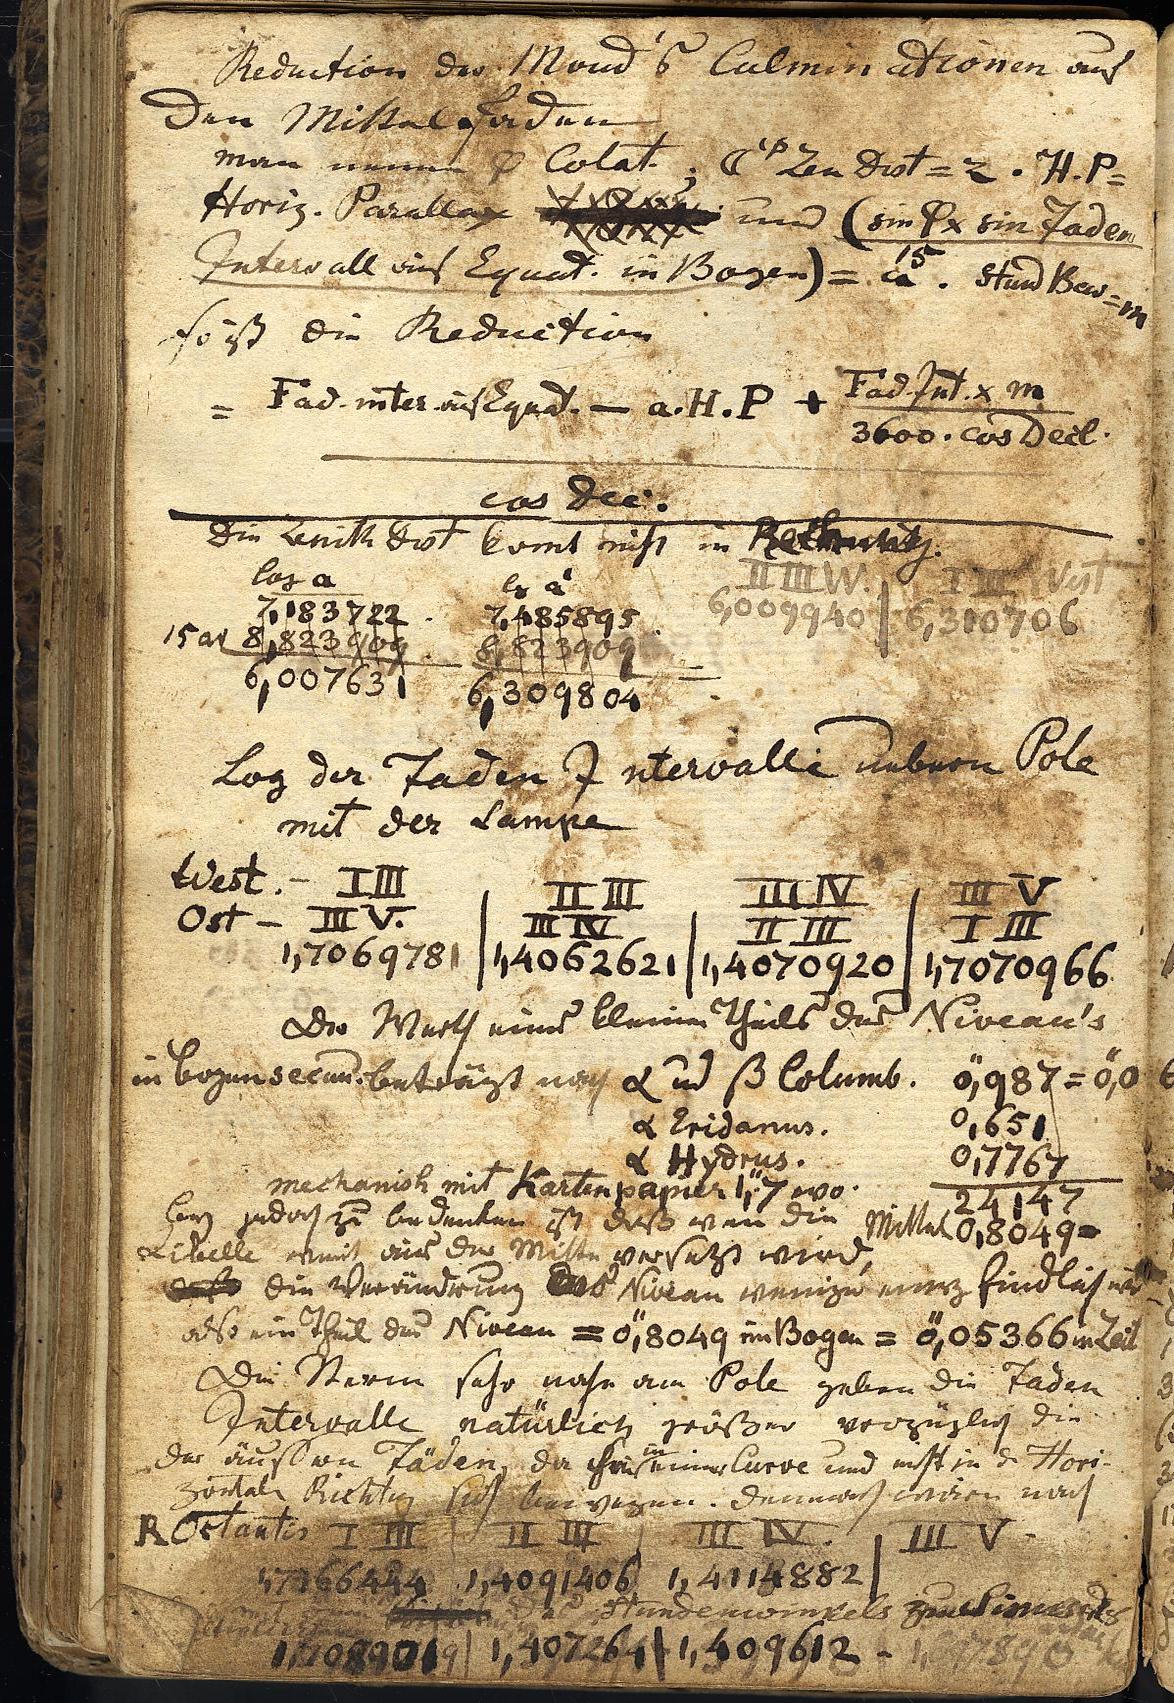 Reduction des Mond's Culminationen auf
den Mittel Faden
man nenne φ Colat. ; ☾ Zen Dist = z . H.P=
Horiz. Parallax und (sin φ x sin Faden
Intervall auf Equat. in Bogen) = a . Stund Bew = m
15
so ist die Reduction
= Fad. inter. auf Equat. — a.H.P + Fad. Int. x m
3600 . cos Decl.
cos Dec.
Die Zenith Dist komt nicht in Rechnung.
log a lg a'
II III W. | I III West
7,183722 . 7,485895 6,009940 | 6,310706
15 ar 8,823909 . 8,823909
6,007631 6,309804
Log der Faden Intervalle nebern Pole
mit der Lampe
West. – I III II III III IV III V
Ost – III V. III IV II III I III
1,7069781 | 1,4062621 | 1,4070920 | 1,7070966
Der Werth eines kleinen Theils des Niveau's
in Bogensecun. beträgt nach α und β Columb. 0",987 = 0",0
α Eridanus. 0,651
α Hydrus. 0,7767
mechanish mit Kartenpapier 1",7 wo. 24147
jedoch zu bedenken ist daß wen die Mittel 0,8049=
Libelle aus der Mitte versetzt wird,
die Veränderung des Niveau weniger empfindlich wird
also ein Theil des Niveau = 0",8049 im Bogen = 0",05366 in Zeit
Die Stern sehr nahe am Pole geben die Faden
Intervalle natürlich größer vorzüglich die
der äussern Fäden, da in einer Curve und nicht in d. Hori-
zontale Richtg sich bewegen. demnach wären nach
R Octantis I III II III III IV. III V
1,7166444 1,4091406 1,4114882 |
des Stundenwinkels
1,7089019 | 1,407264 | 1,409612 –